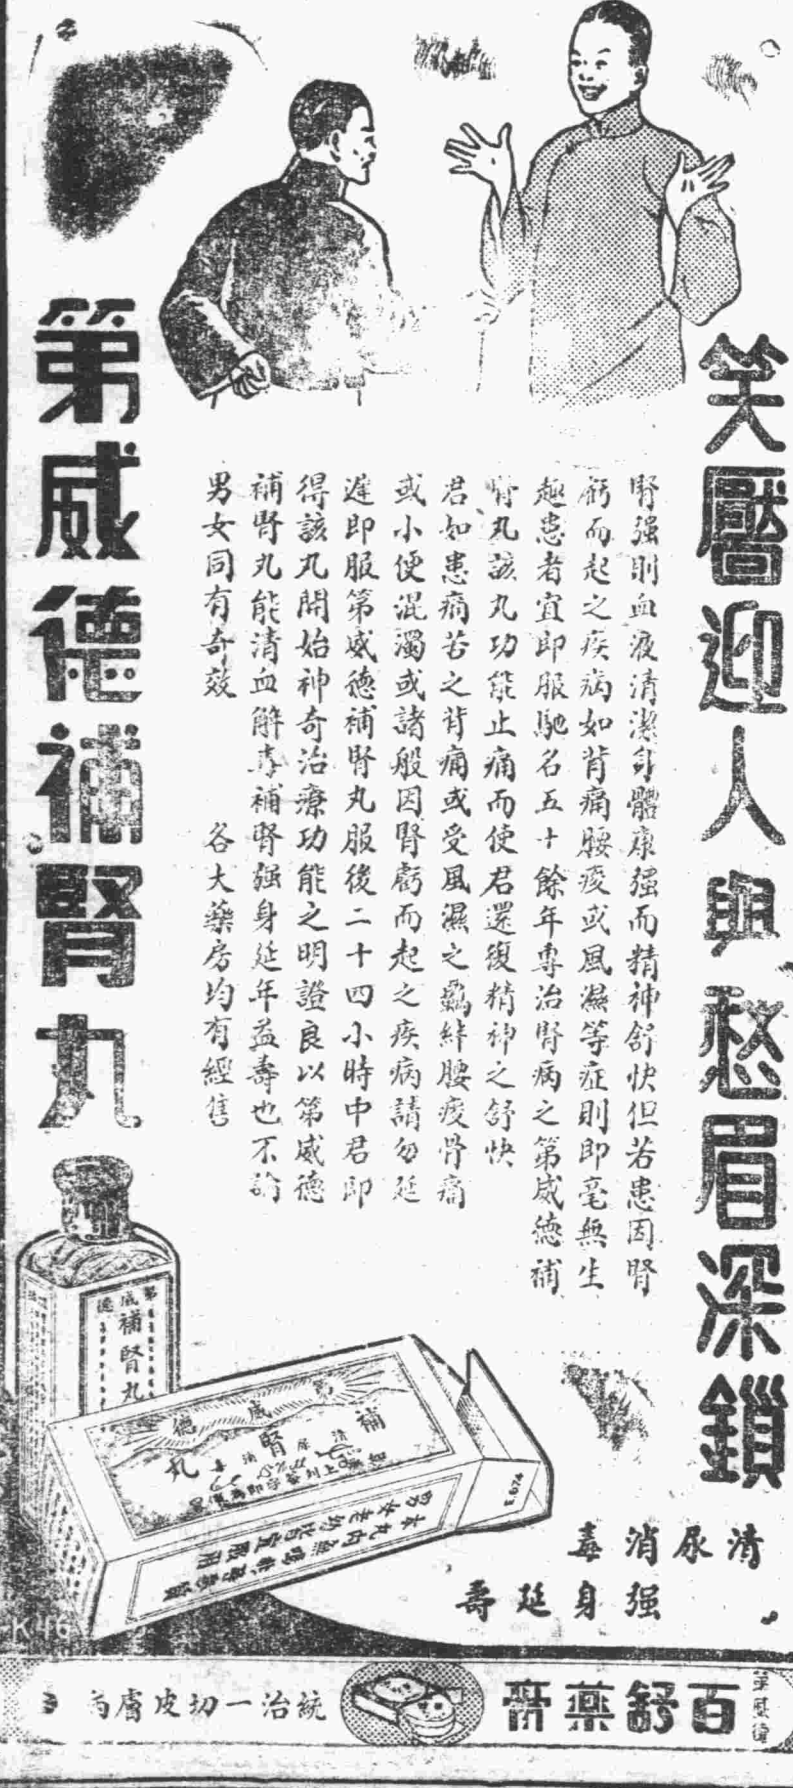 笑靨迎人與愁眉深鎖
腎强則血液清潔身體康强而精神舒快但若患因腎
虧而起之疾病如背痛腰痠或風濕等症則即毫無生
趣患者宜即服馳名五十餘年專治腎病之第威德補
腎丸該丸功能止痛而使君還復精神之舒快
君如患痛苦之背痛或受風濕之羈絆腰痠骨痛
或小便混濁或諸般因腎虧而起之疾病請勿延
遲即服第威德補腎丸服後二十四小時中君即
得該丸開始神奇治療功能之明證良以第威德
補腎丸能清血解毒補腎强身延年益壽也不論
男女同有奇效　各大藥房均有經售
第威德補腎丸
第威德
補腎丸
威德
補腎丸
E.674
清尿消毒
强身延壽
K 46
第威德
百舒藥膏
統治一切皮膚病